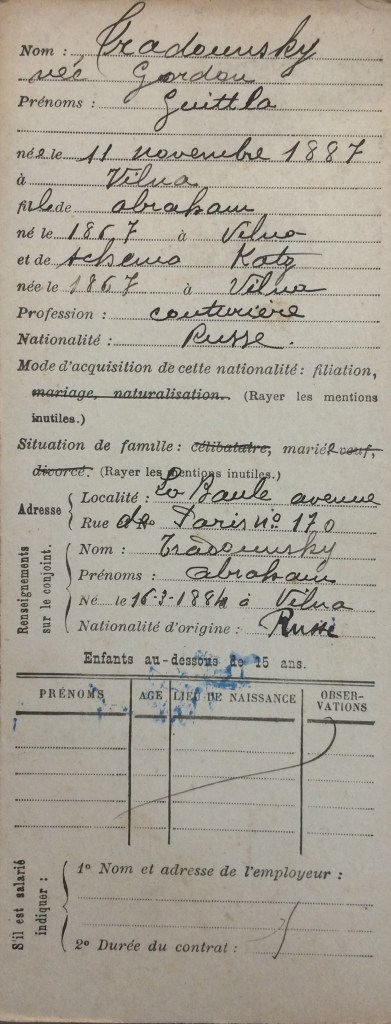 Nom : Tradounsky
née Gordon
Prénoms : Guittla
née le 11 novembre 1887
à Vilna
fille de abraham
né le 1867 à Vilna
et de schema Katz
née le 1867 à Vilna
Profession : couturière
Nationalité : Russe.
Mode d'acquisition de cette nationalité : filiation,
mariage, naturalisation. (Rayer les mentions
inutiles.)
Situation de famille : célibataire, mariée veuf,
divorcé. (Rayer les mentions inutiles.)
Adresse
Localité : La Baule avenue
Rue de Paris n° 170
Renseignements
sur le conjoint.
Nom : Tradounsky
Prénoms : abraham
Né le 16-3-1884 à Vilna
Nationalité d'origine : Russe
Enfants au-dessous de 15 ans.
PRÉNOMS AGE LIEU DE NAISSANCE OBSER-
VATIONS
S'il est salarié
indiquer :
1° Nom et adresse de l'employeur :
2° Durée du contrat :